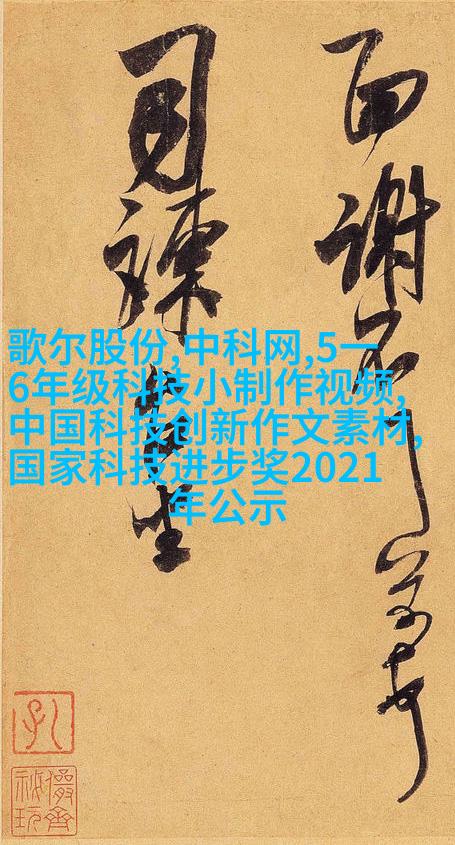 面謝不
司諫
坐
歌尔股份,中科网,5一
6年级科技小制作视频,
中国科技创新作文素材,
国家科技进步奖2021
年公示
儼齋
秘玩